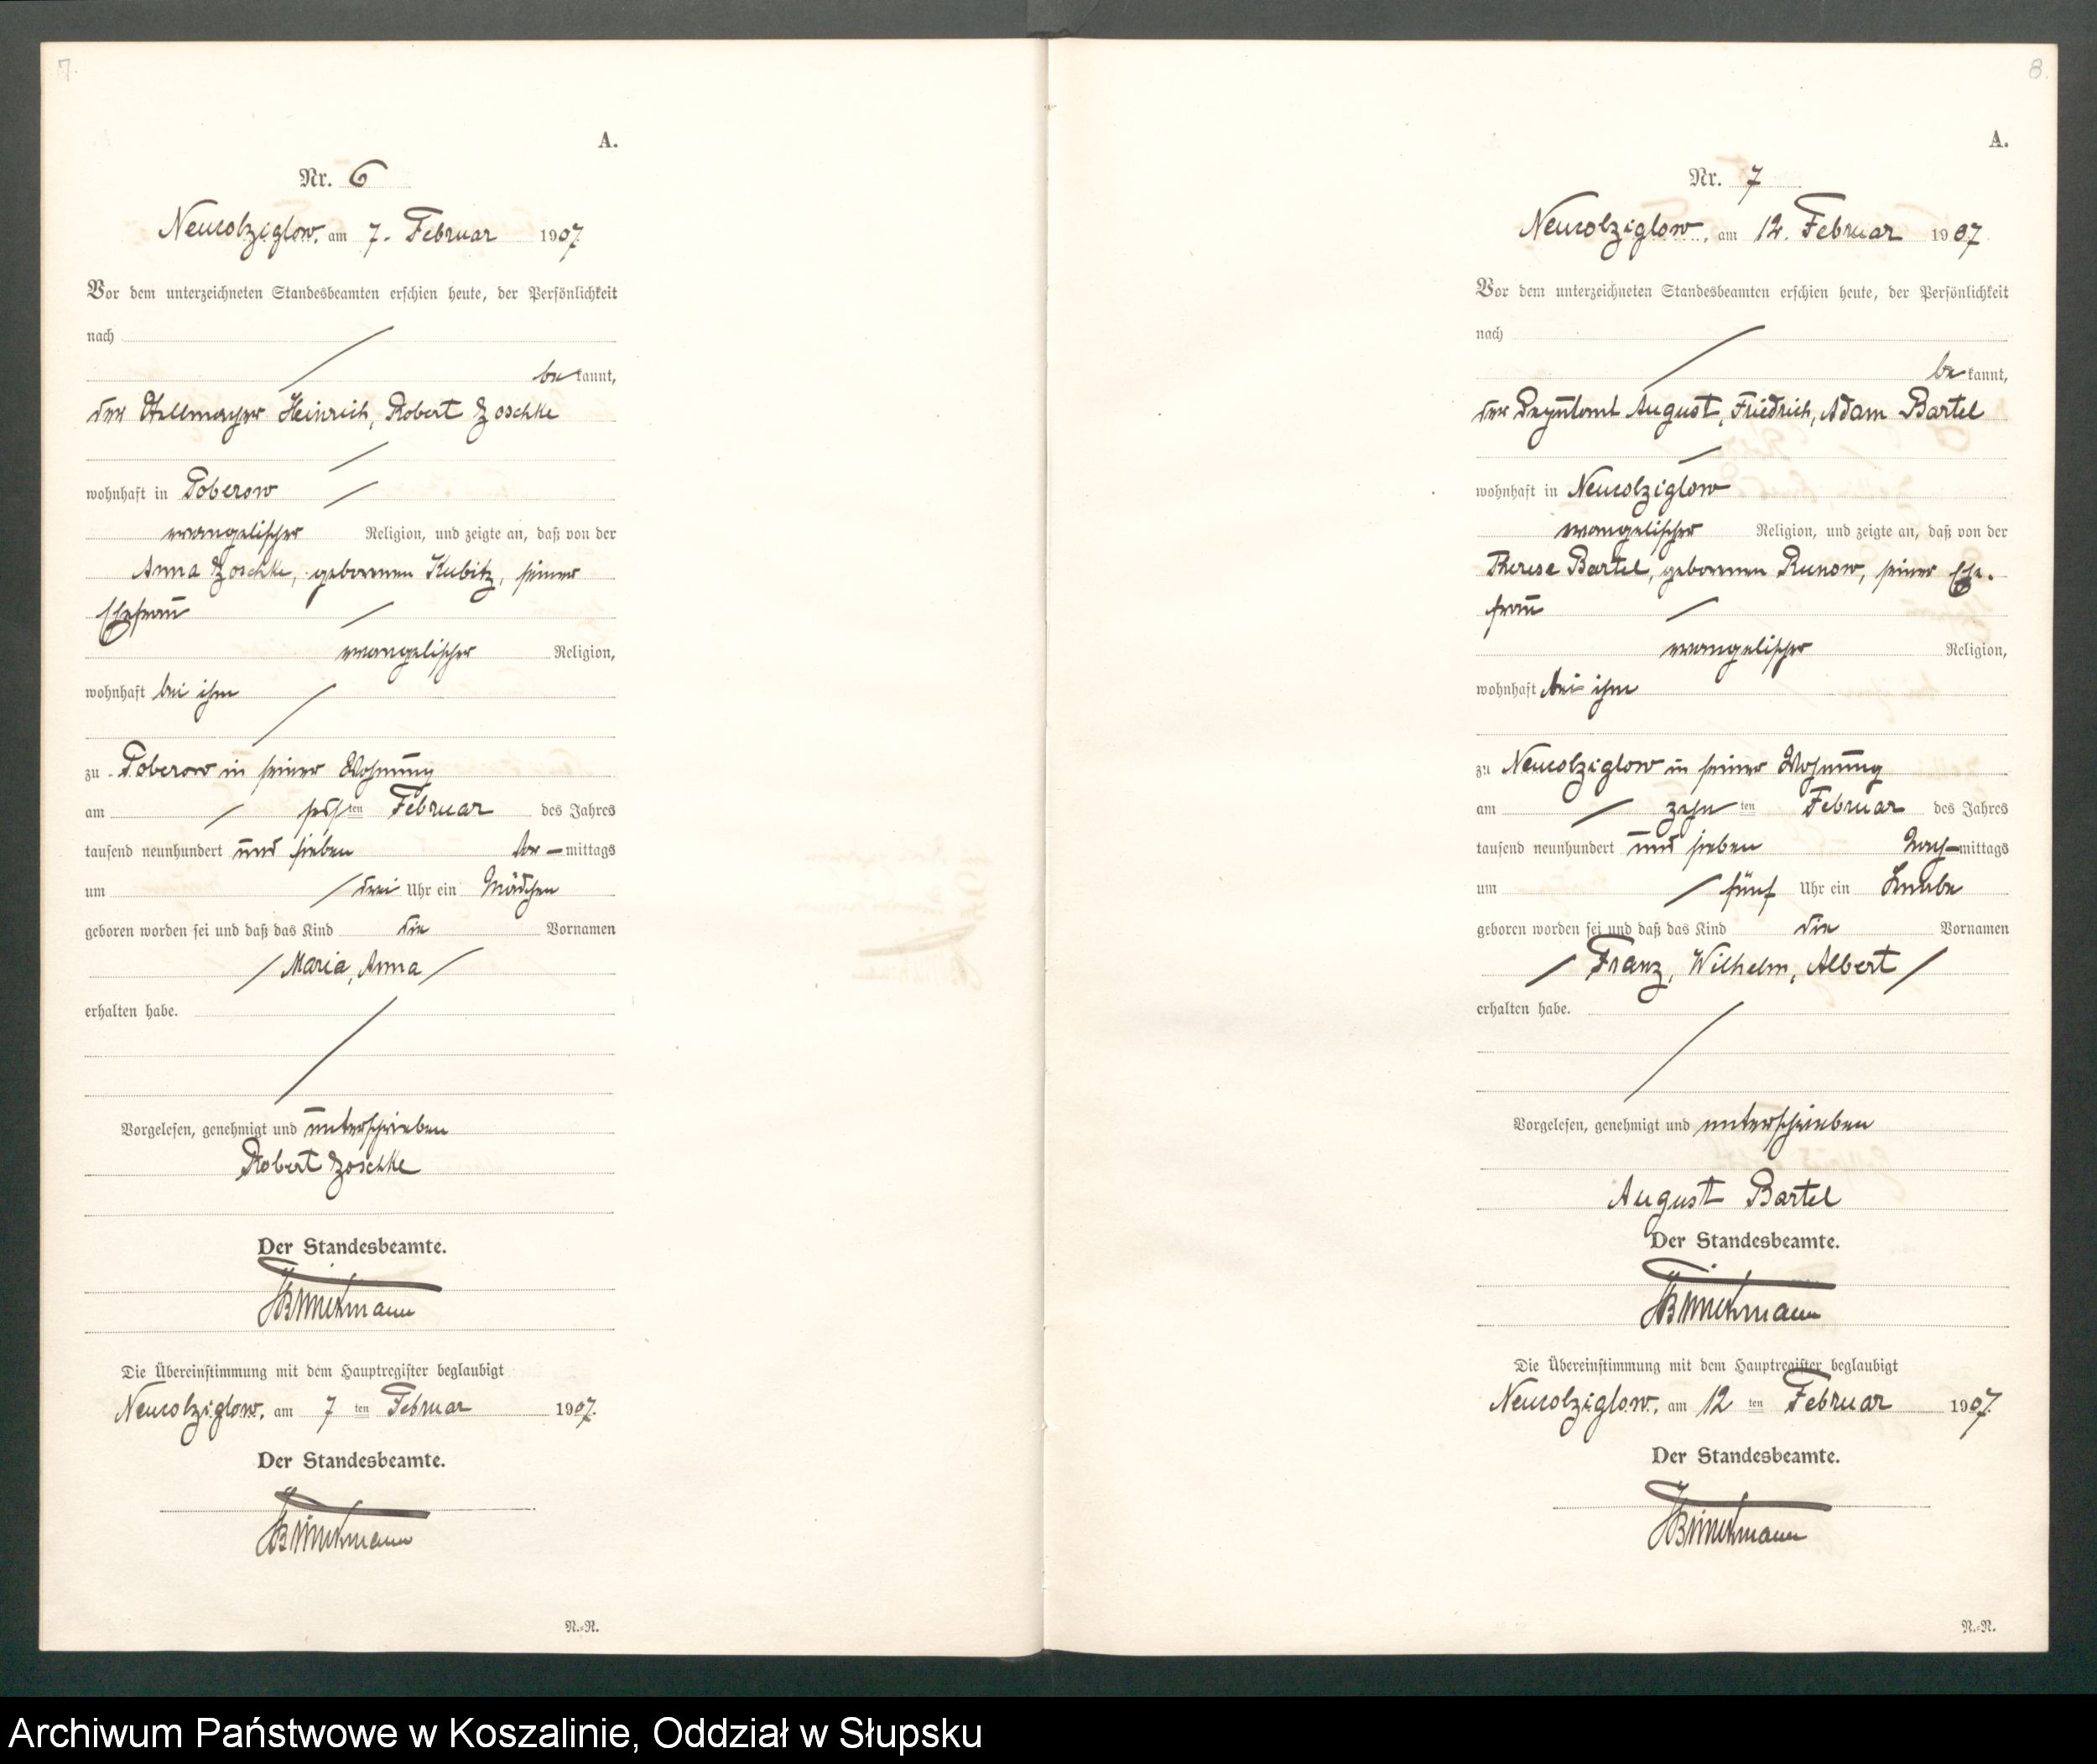 7.
A.
Nr. 6
Neukolziglow, am 7. Februar 1907
Vor dem unterzeichneten Standesbeamten erschien heute, der Persönlichkeit
nach
bekannt,
der Stellmacher Heinrich, Robert Zoschke
wohnhaft in Poberow
evangelischer Religion, und zeigte an, daß von der
Anna Zoschke, geborenen Kubitz, seiner
Ehefrau
evangelischer Religion,
wohnhaft bei ihm
zu Poberow in seiner Wohnung
am sechsten Februar des Jahres
tausend neunhundert und sieben Vor-mittags
um drei Uhr ein Mädchen
geboren worden sei und daß das Kind die Vornamen
Maria, Anna
erhalten habe.
Vorgelesen, genehmigt und unterschrieben
Robert Zoschke
Der Standesbeamte.
Brinckmann
Die Übereinstimmung mit dem Hauptregister beglaubigt
Neukolziglow, am 7 ten Februar 1907.
Der Standesbeamte.
Brinckmann
N.-N.
8.
A.
Nr. 7
Neukolziglow, am 12. Februar 1907
Vor dem unterzeichneten Standesbeamten erschien heute, der Persönlichkeit
nach
bekannt,
der August, Friedrich, Adam Bartel
wohnhaft in Neukolziglow
evangelischer Religion, und zeigte an, daß von der
Therese Bartel, geborenen Runow, seiner Ehe-
frau
evangelischer Religion,
wohnhaft bei ihm
zu Neukolziglow in seiner Wohnung
am zehn ten Februar des Jahres
tausend neunhundert und sieben Nach-mittags
um fünf Uhr ein Knabe
geboren worden sei und daß das Kind die Vornamen
Franz, Wilhelm, Albert
erhalten habe.
Vorgelesen, genehmigt und unterschrieben
August Bartel
Der Standesbeamte.
Brinckmann
Die Übereinstimmung mit dem Hauptregister beglaubigt
Neukolziglow, am 12 ten Februar 1907.
Der Standesbeamte.
Brinckmann
N.-N.
Archiwum Państwowe w Koszalinie, Oddział w Słupsku